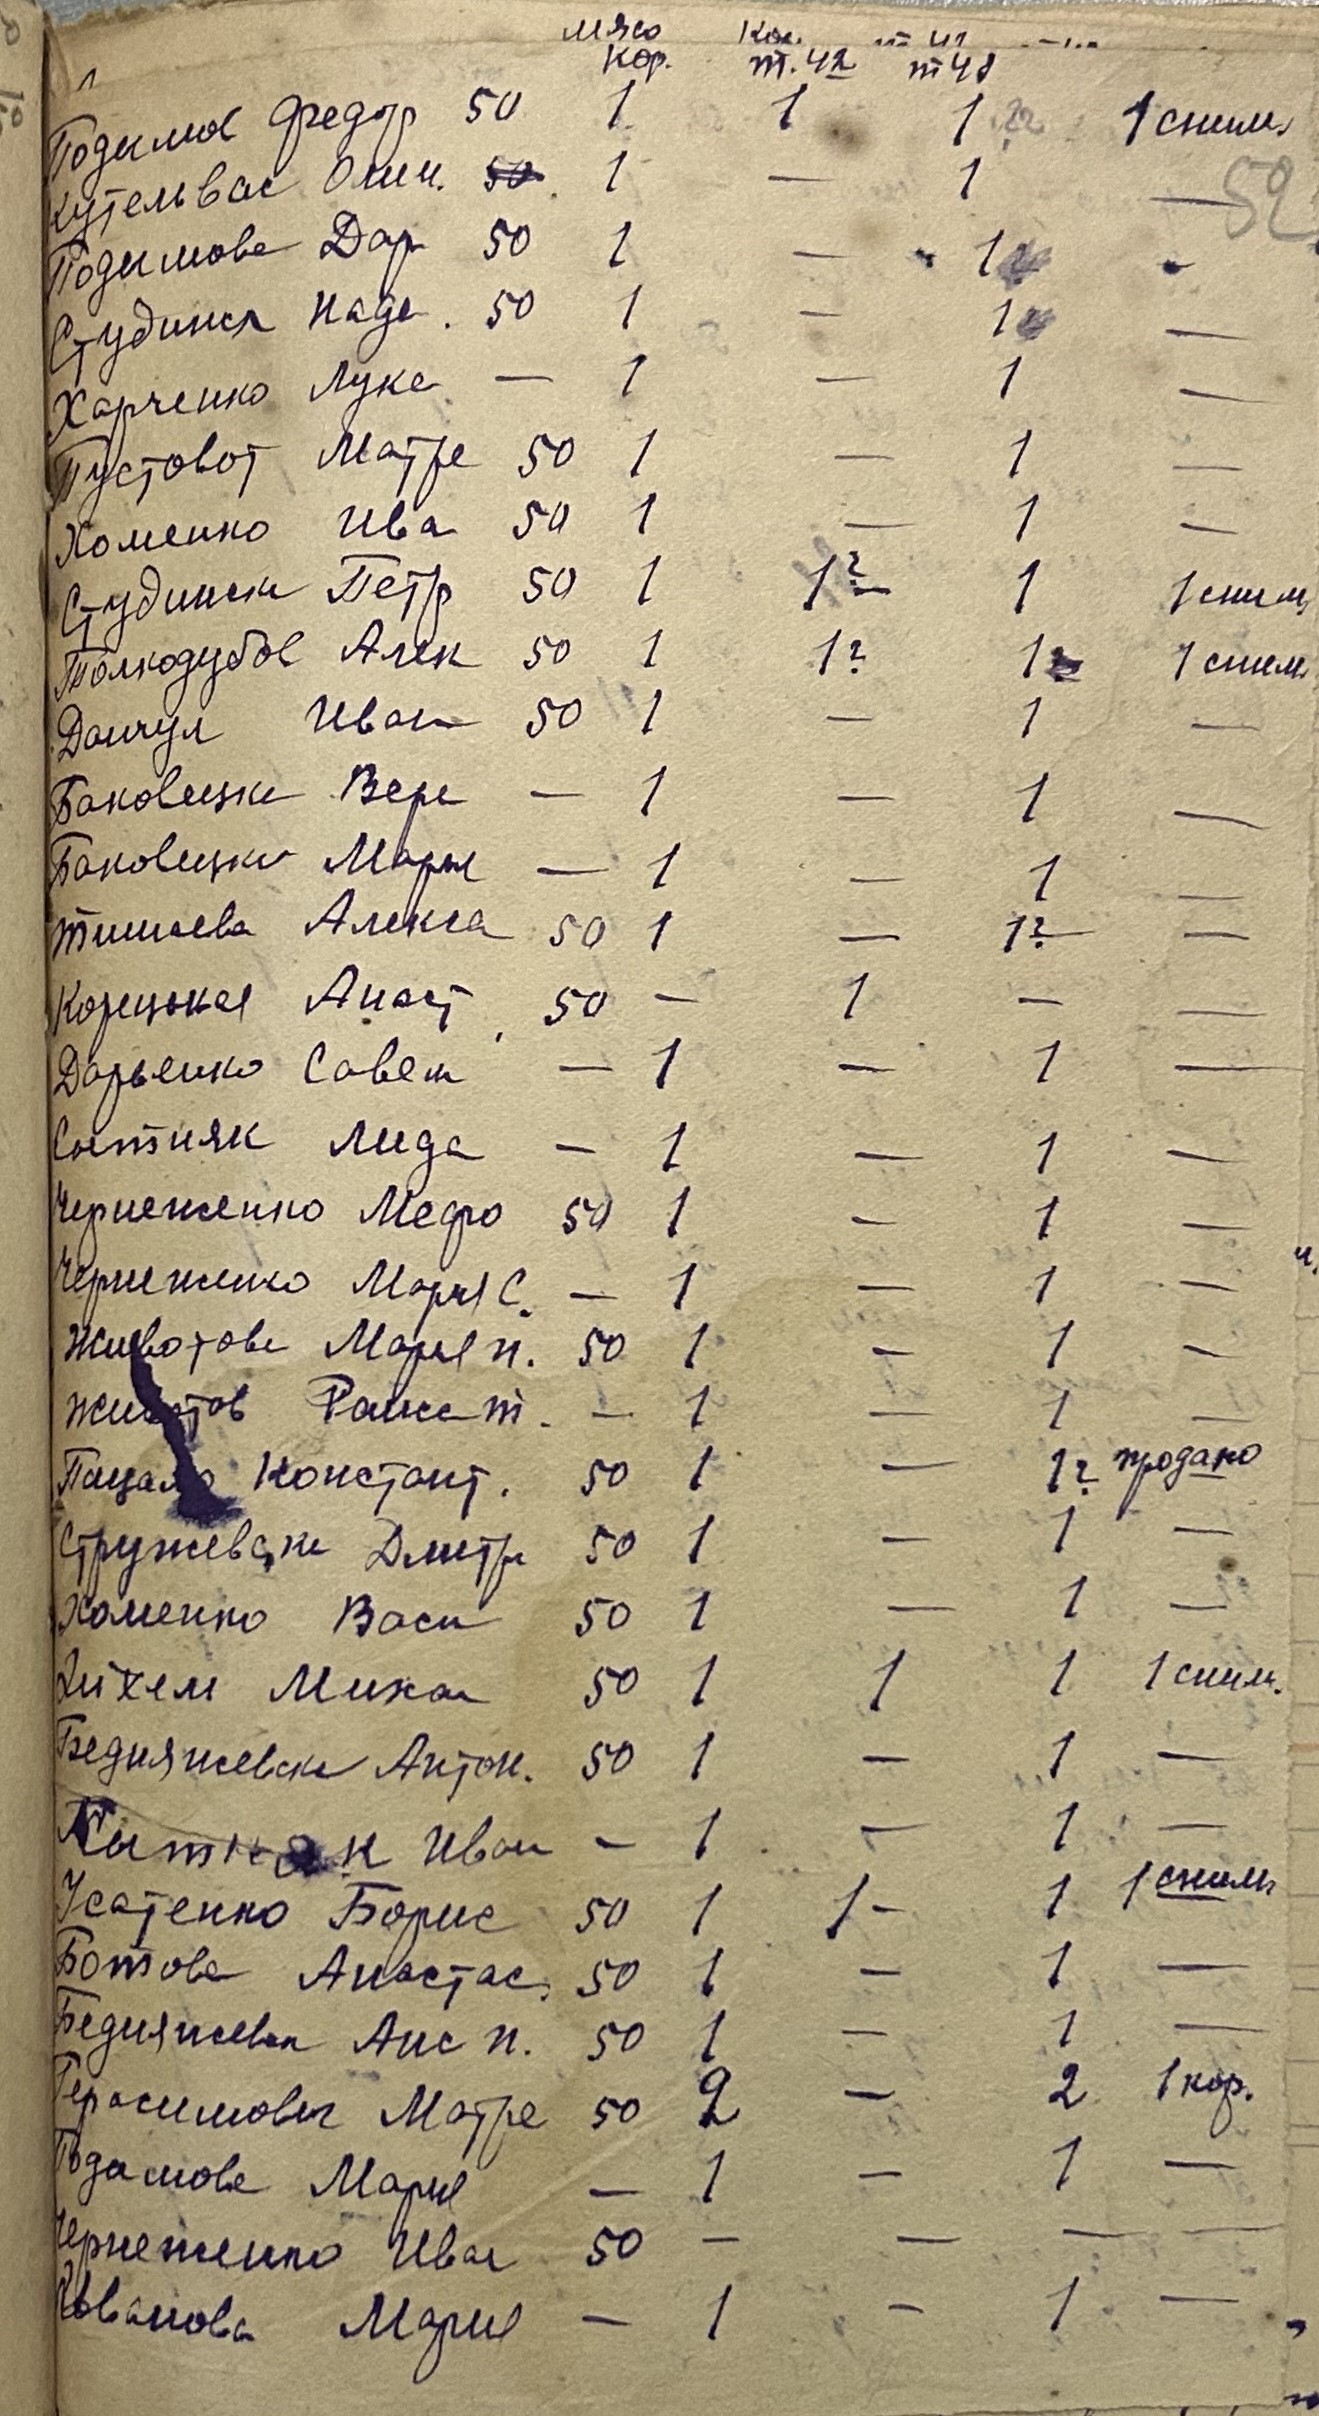 мясо Кол.
кор. т.42 т 41
Подымов Федор 50 1 1 1 1 сним.
Кутельвас Олим. 50 1 — 1 —
52
Подымова Дар 50 1 — 1
Студинск Наде. 50 1 — 1 —
Харченко Лука — 1 — 1 —
Пустовот Матре 50 1 — 1 —
Хоменко Ива 50 1 — 1 —
Студински Петр 50 1 1? — 1 1 сним
Толкодубов Алек 50 1 1? 1 1 сним
Данчул Иван 50 1 — 1 —
Баковецки Вера — 1 — 1 —
Баковецки Мария — 1 — 1 —
Тишаева Алекса 50 1 — 1? —
Корецькая Анаст 50 — 1 — —
Дарьенко Савет — 1 — 1 —
Сытняк Лида — 1 — 1 —
Черненженко Мефо 50 1 — 1 —
Черненженко Мария С. — 1 — 1 —
Животова Мария п. 50 1 — 1 —
Животов Раиса т. — 1 — 1 —
Пацало Констант. 50 1 — 1? продано
Стружевски Дмитр 50 1 — 1 —
Хоменко Васи 50 1 — 1 —
Михаи 50 1 1 1 1 сним.
Бедняжевски Антон. 50 1 — 1 —
Сытняк Иван — 1 — 1 —
Усатенко Борис 50 1 1 – 1 1 сним
Ботова Анастас. 50 1 — 1 —
Бедняжевск Анс п. 50 1 — 1 —
Герасимович Матре 50 2 — 2 1 кор.
Подамова Мария — 1 — 1 —
Черненженко Иван 50 — — — —
Иванова Мария — 1 — 1 —